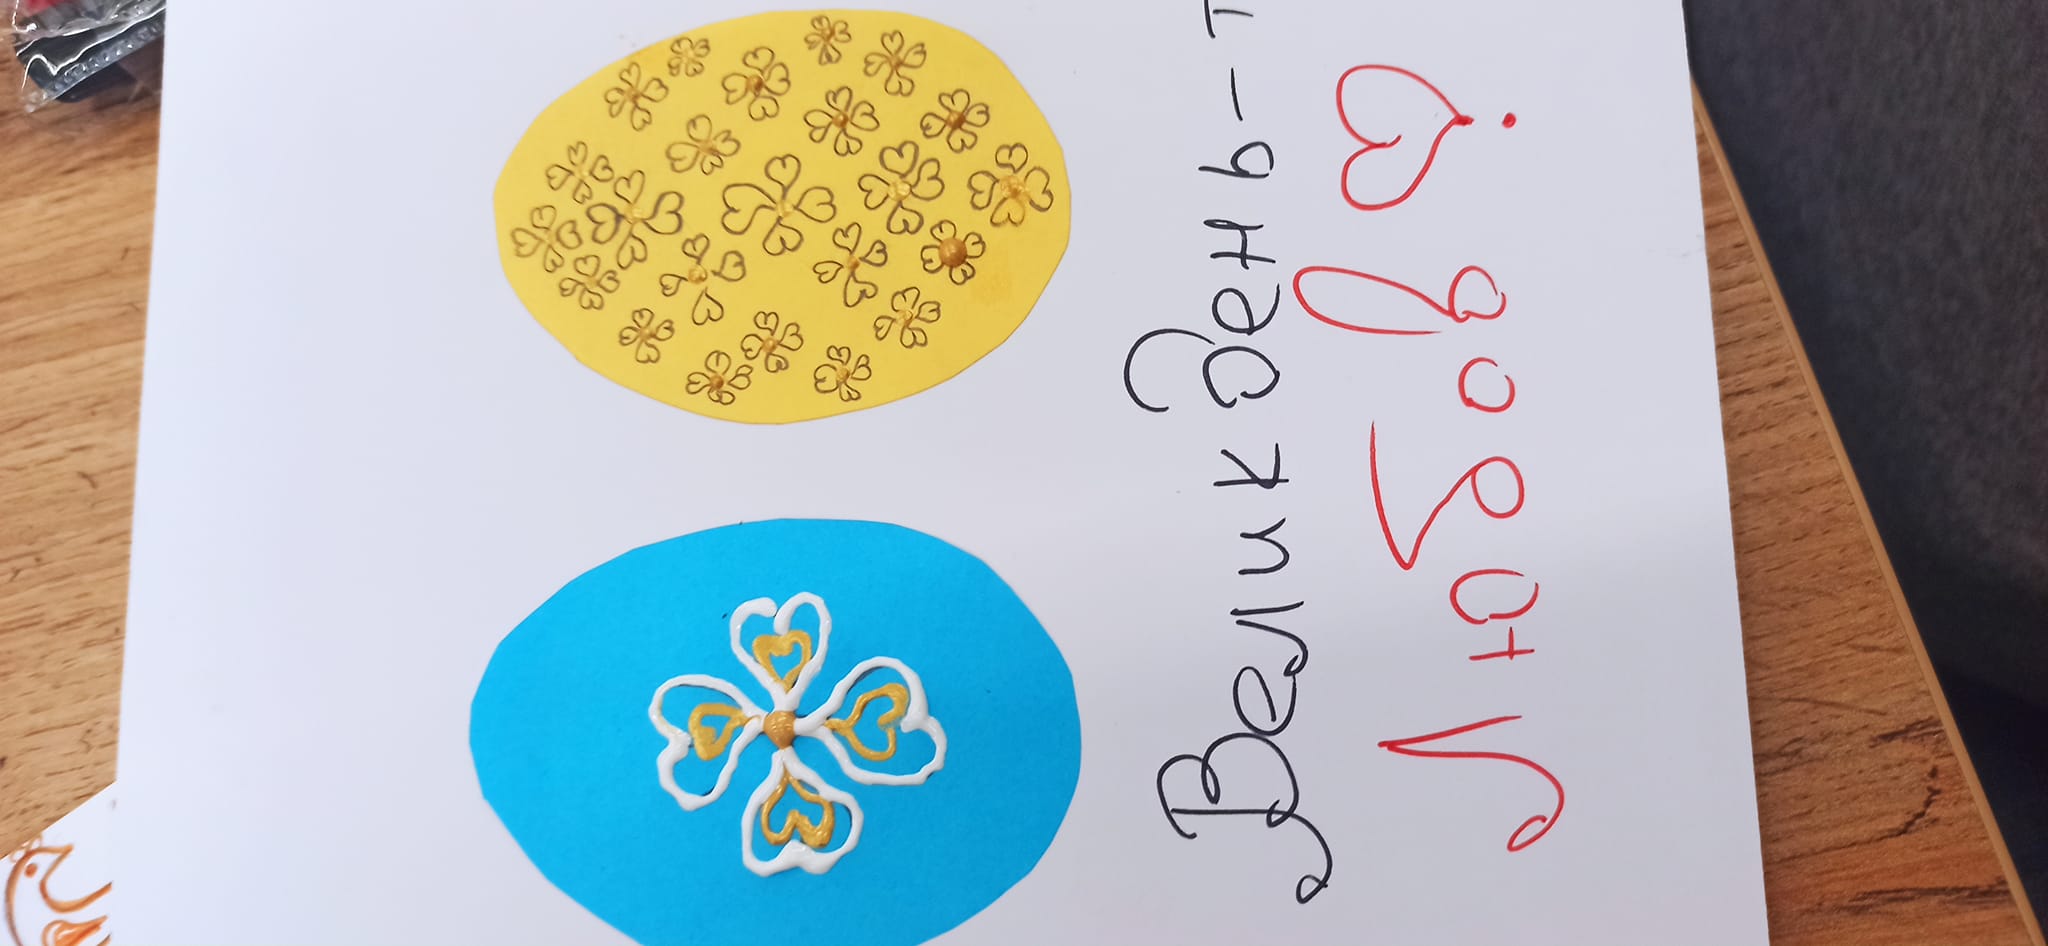 Великдень -
Любов!